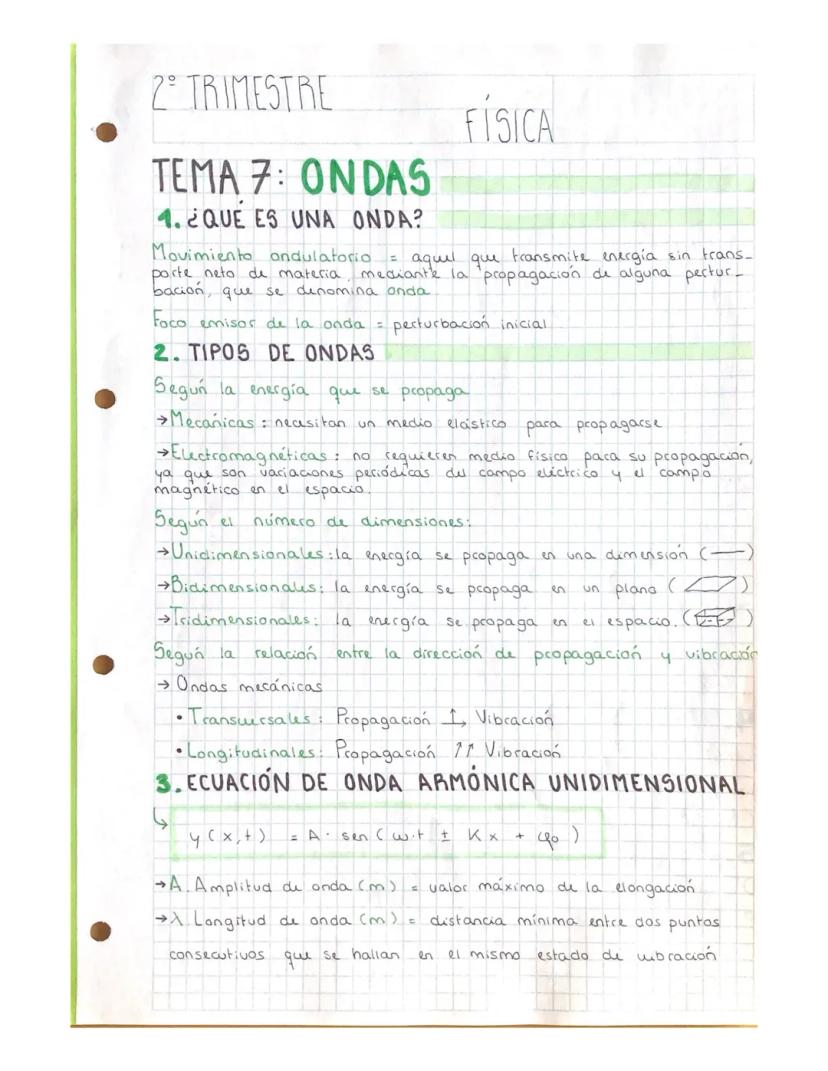 2º TRIMESTRE
FÍSICA
TEMA 7: ONDAS
1. ¿QUÉ ES UNA ONDA?
Movimiento ondulatorio = aquel que transmite energía sin trans-
porte neto de materia, mediante la propagación de alguna pertur-
bación, que se denomina onda
Foco emisor de la onda = perturbación inicial
2. TIPOS DE ONDAS
Según la energía que se propaga
→Mecánicas: necesitan un medio elástico para propagarse
→Electromagnéticas: no requieren medio físico para su propagación,
ya que son variaciones periódicas del campo eléctrico y el campo
magnético en el espacio.
Según el número de dimensiones:
→Unidimensionales: la energía se propaga en una dimensión (—)
→Bidimensionales: la energía se propaga en un plano ( )
→Tridimensionales: la energía se propaga en el espacio. ( )
Según la relación entre la dirección de propagación y vibración
→ Ondas mecánicas
• Transversales: Propagación ↑→ Vibración
• Longitudinales: Propagación ↑↑ Vibración
3. ECUACIÓN DE ONDA ARMÓNICA UNIDIMENSIONAL
↳ y (x,t) = A · sen (ω·t ± Kx + φ₀)
→A. Amplitud de onda (m) = valor máximo de la elongación
→λ Longitud de onda (m) = distancia mínima entre dos puntos
consecutivos que se hallan en el mismo estado de vibración